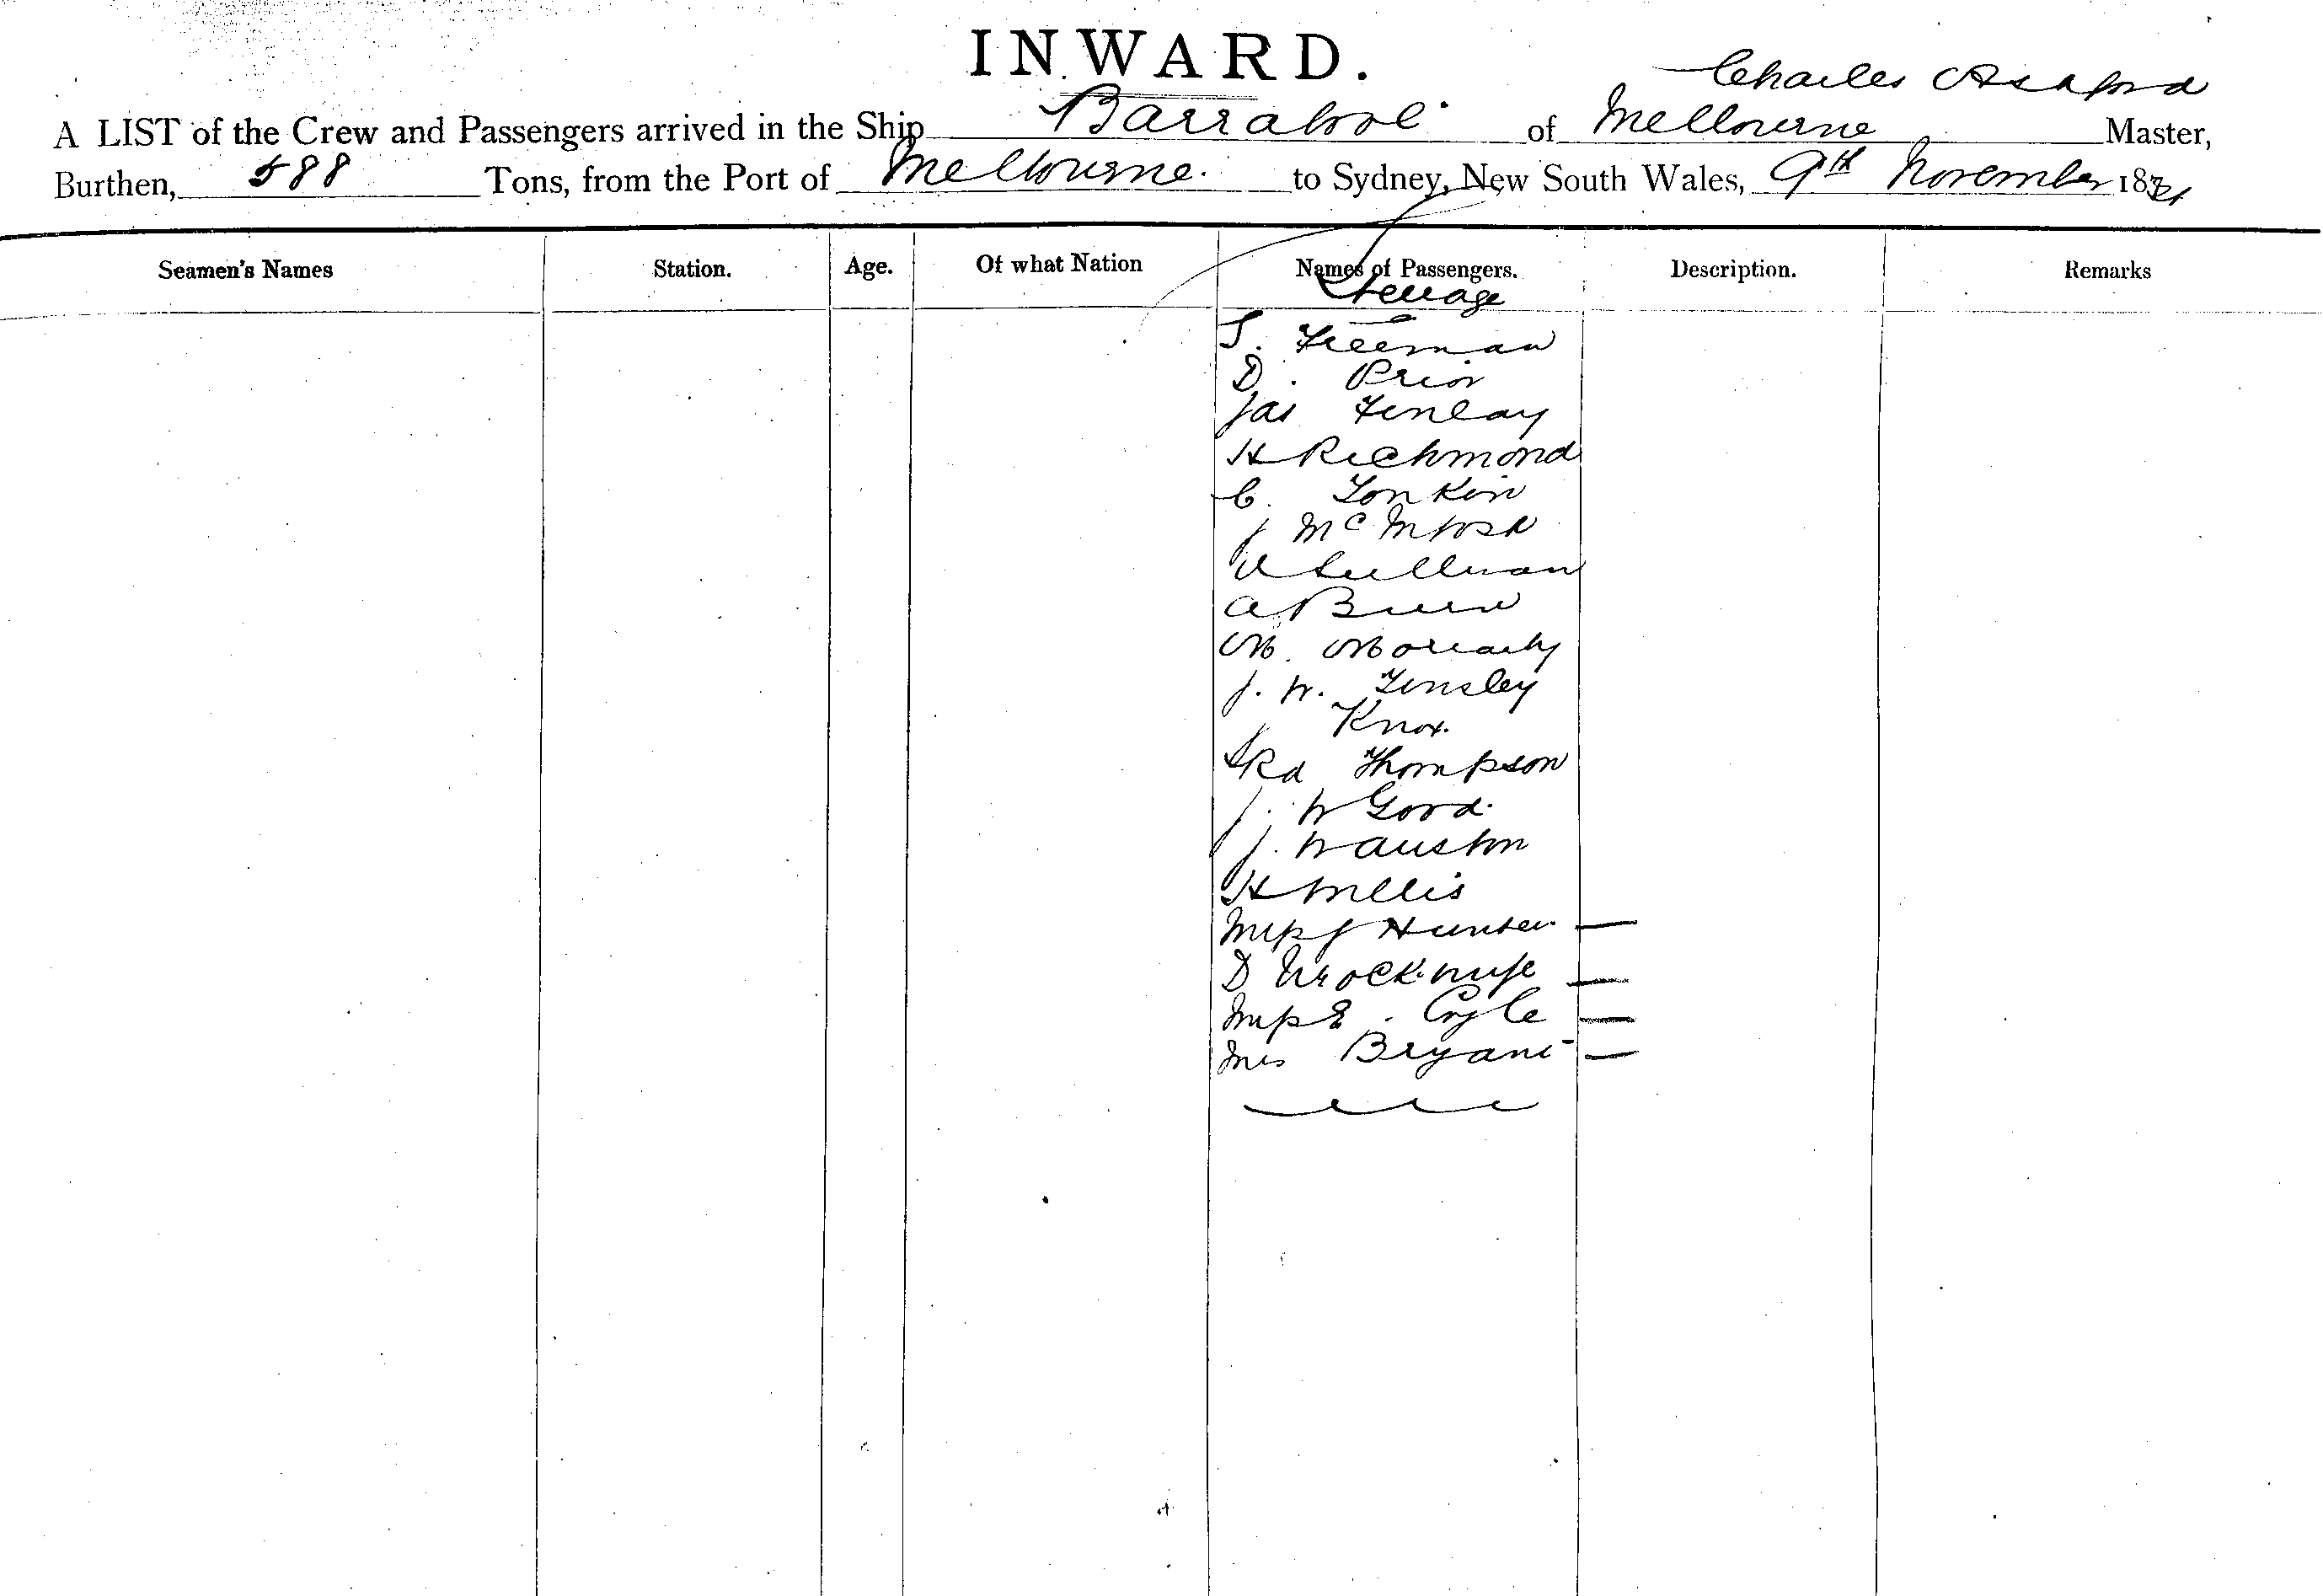 INWARD.
Charles Ashford
A LIST of the Crew and Passengers arrived in the Ship Barrabool of Melbourne Master,
Burthen, 588 Tons, from the Port of Melbourne. to Sydney, New South Wales, 9th November 18
Seamen's Names Station. Age. Of what Nation Names of Passengers. Description. Remarks
Steerage
S. Freeman
D. Prior
Jas Finlay
H Richmond
C. Tonkin
J McIntosh
Sullivan
A Burn
M. Moriarty
J. W. Tinsley
J Knox.
Thompson
J. W Good.
J. W Austin
H Willis
Miss J Hunter —
D wife —
Miss E. Coyle —
Mrs Bryant —